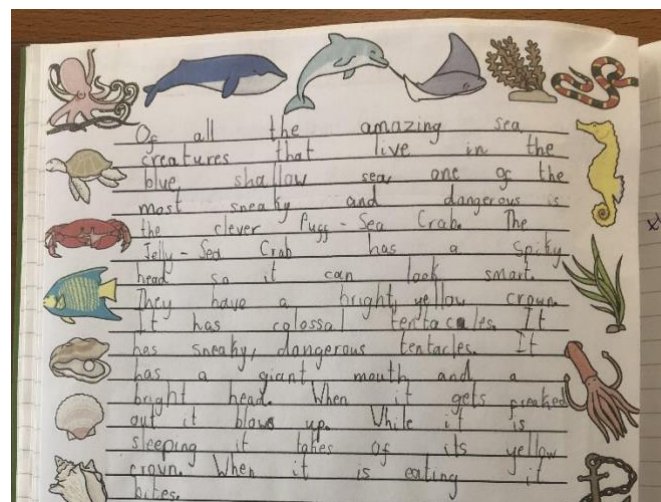 Of all the amazing sea
creatures that live in the
blue, shallow sea one of the
most sneaky and dangerous is
the clever Puff-Sea Crab. The
Jelly-Sea Crab has a spiky
head so it can look smart.
They have a bright, yellow crown.
It has colossal tentacules. It
has sneaky, dangerous tentacles. It
has a giant mouth and a
bright head. When it gets freaked
out it blows up. While it is
sleeping it takes of its yellow
crown. When it is eating it
bites.